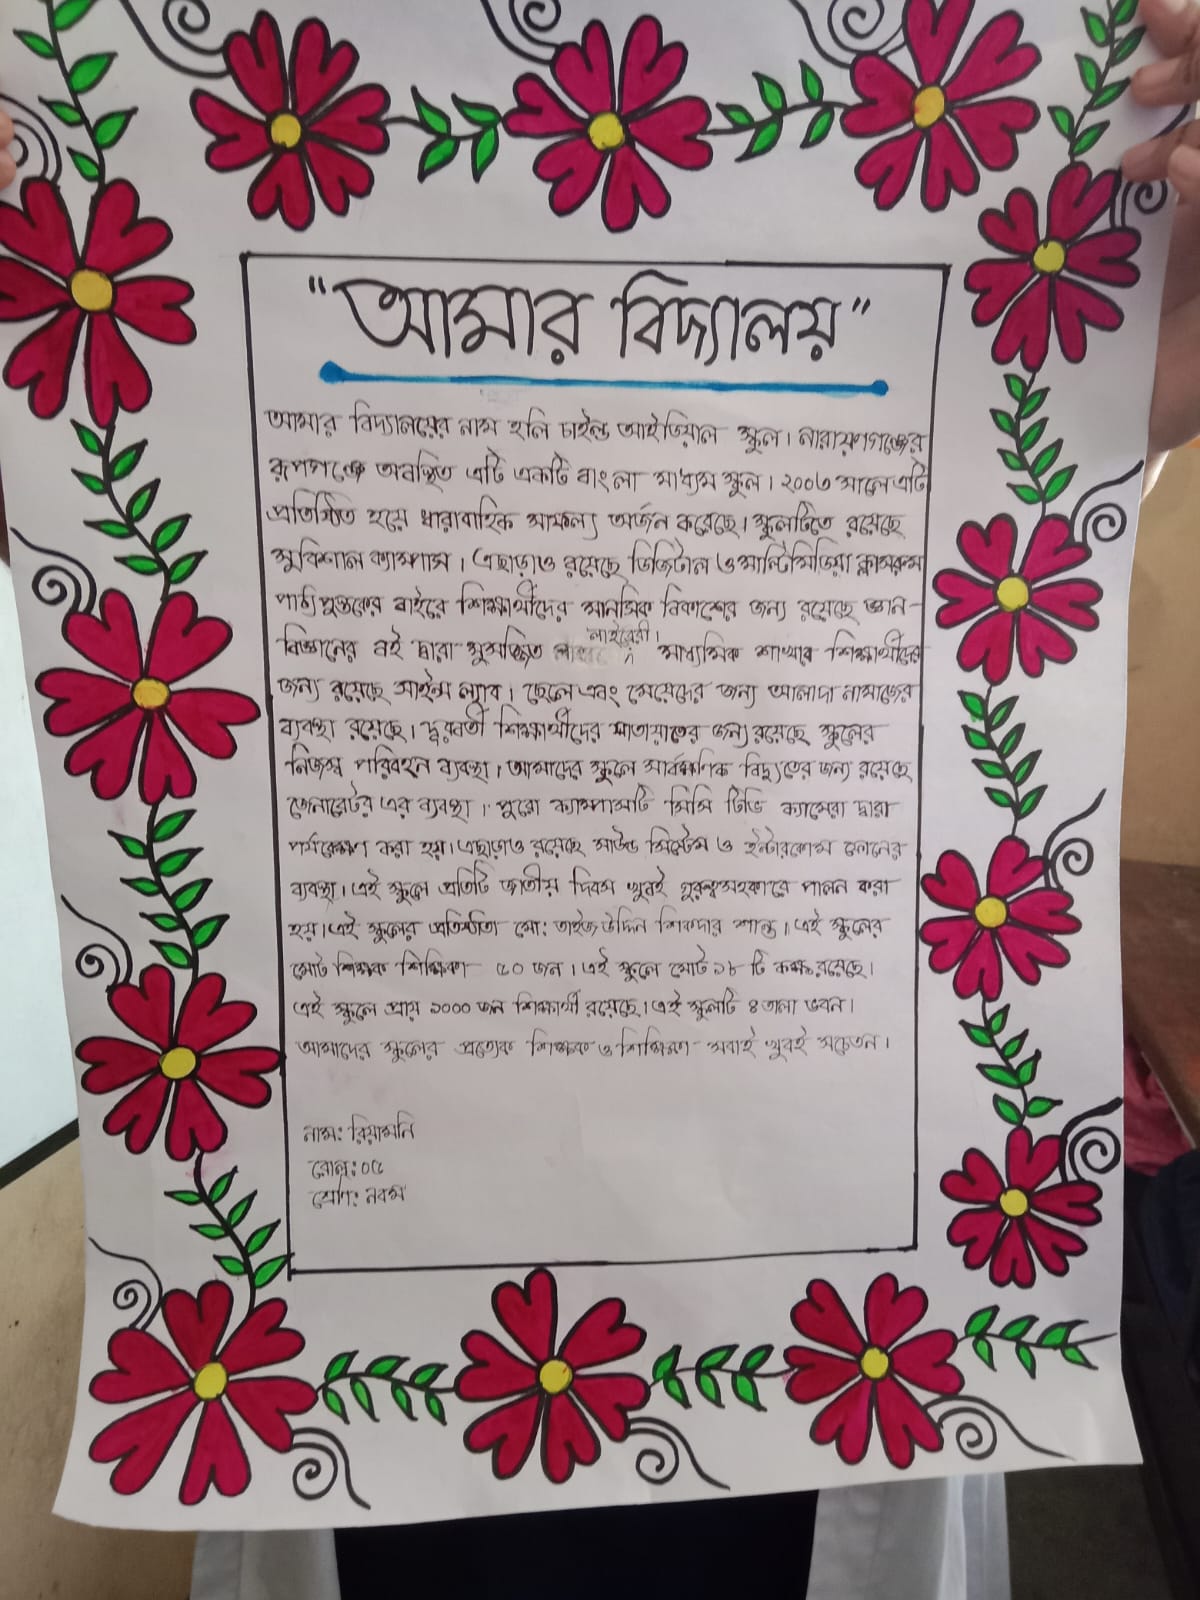 "আমার বিদ্যালয়"
আমার বিদ্যালয়ের নাম হলি চাইল্ড আইডিয়াল স্কুল। নারায়ণগঞ্জের
রূপগঞ্জে অবস্থিত এটি একটি বাংলা মাধ্যম স্কুল। ২০০৩ সালে এটি
প্রতিষ্ঠিত হয়ে ধারাবাহিক সাফল্য অর্জন করেছে। স্কুলটিতে রয়েছে
সুবিশাল ক্যাম্পাস। এছাড়াও রয়েছে ডিজিটাল ও মাল্টিমিডিয়া ক্লাসরুম
পাঠ্যপুস্তকের বাইরে শিক্ষার্থীদের মানসিক বিকাশের জন্য রয়েছে জ্ঞান-
বিজ্ঞানের বই দ্বারা সুসজ্জিত লাইব্রেরী। মাধ্যমিক শাখার শিক্ষার্থীদের
জন্য রয়েছে সাইন্স ল্যাব। ছেলে এবং মেয়েদের জন্য আলাদা নামাজের
ব্যবস্থা রয়েছে। দূরবর্তী শিক্ষার্থীদের যাতায়াতের জন্য রয়েছে স্কুলের
নিজস্ব পরিবহন ব্যবস্থা। আমাদের স্কুলে সার্বক্ষণিক বিদ্যুতের জন্য রয়েছে
জেনারেটর এর ব্যবস্থা। পুরো ক্যাম্পাসটি সিসি টিভি ক্যামেরা দ্বারা
পর্যবেক্ষণ করা হয়। এছাড়াও রয়েছে সাউন্ড সিস্টেম ও ইন্টারকোম ফোনের
ব্যবস্থা। এই স্কুলে প্রতিটি জাতীয় দিবস খুবই গুরুত্বসহকারে পালন করা
হয়। এই স্কুলের প্রতিষ্ঠাতা মো: তাইজ উদ্দিন শিকদার শান্ত। এই স্কুলের
মোট শিক্ষক শিক্ষিকা ৫০ জন। এই স্কুলে মোট ১৮ টি কক্ষ রয়েছে।
এই স্কুলে প্রায় ১০০০ জন শিক্ষার্থী রয়েছে। এই স্কুলটি ৪ তালা ভবন।
আমাদের স্কুলের প্রত্যেক শিক্ষক ও শিক্ষিকা সবাই খুবই সচেতন।
নাম: রিয়ামনি
রোল: ০৫
শ্রেণি: নবম